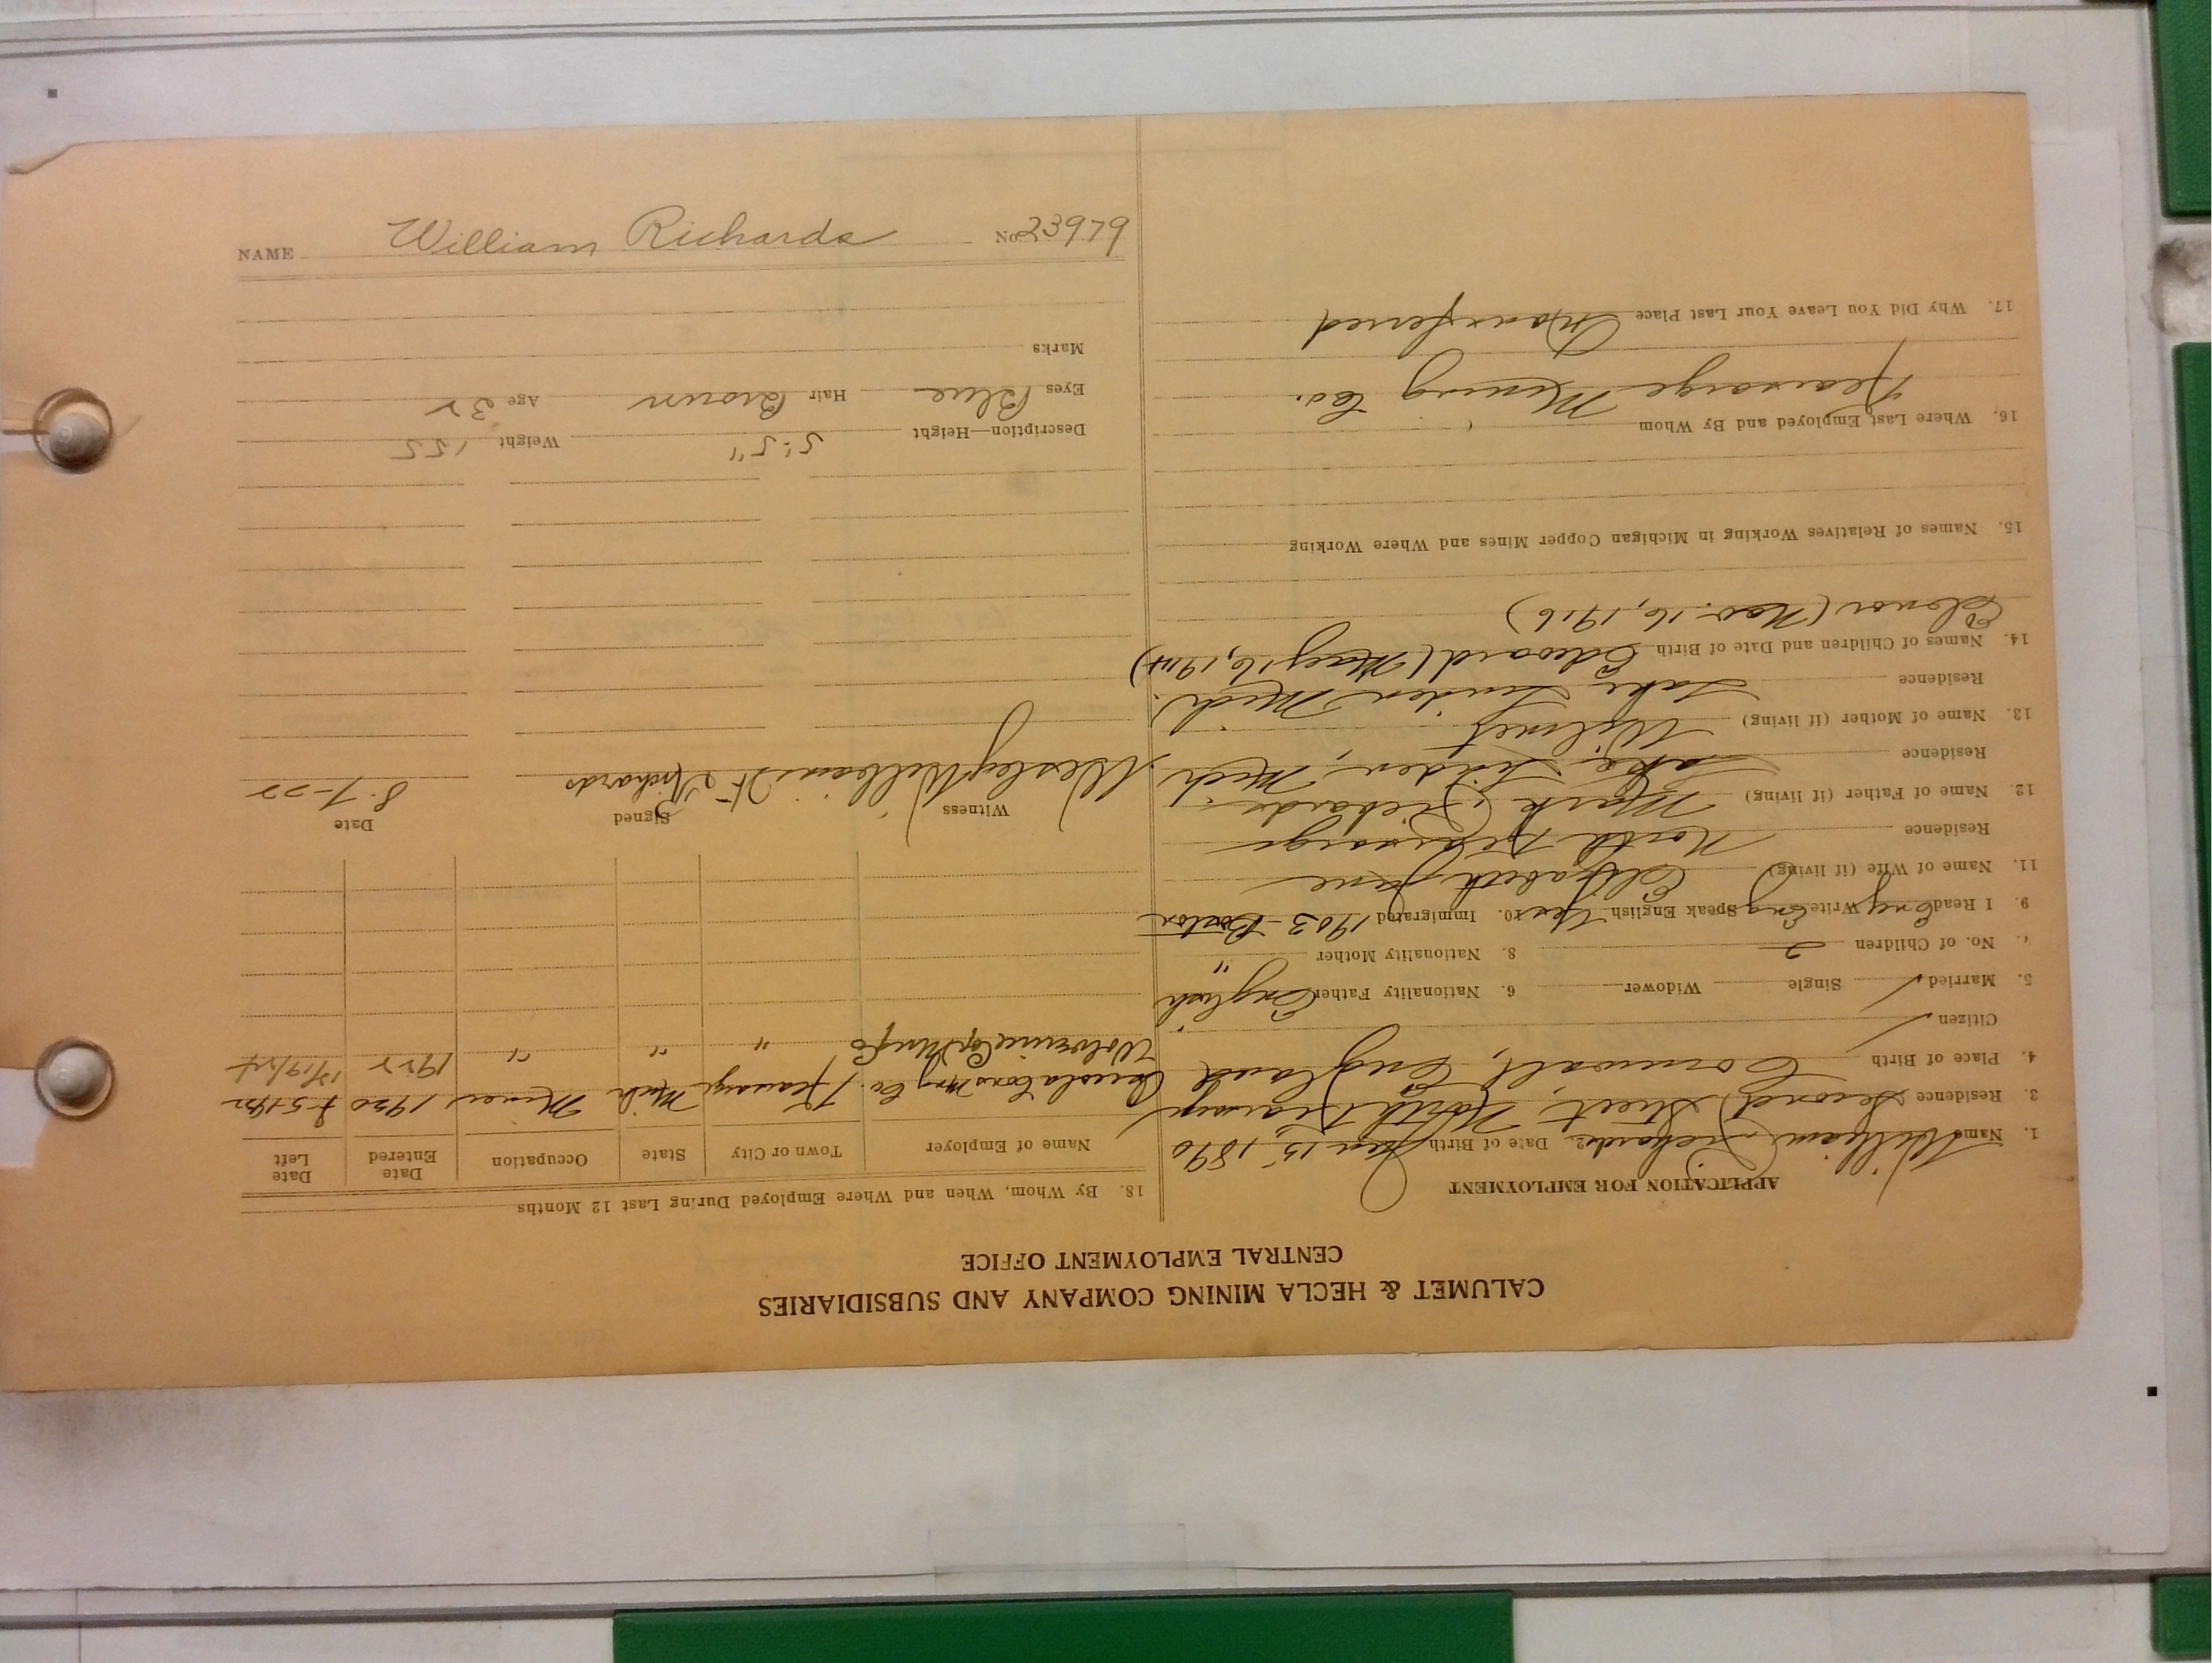 CALUMET & HECLA MINING COMPANY AND SUBSIDIARIES
CENTRAL EMPLOYMENT OFFICE
APPLICATION FOR EMPLOYMENT
1. Name William Richards 2. Date of Birth Jan 15, 1890
3. Residence Second Street, North Kearsarge
4. Place of Birth Cornwall, England
Citizen ✓
5. Married ✓ Single Widower 6. Nationality Father English
7. No. of Children 2 8. Nationality Mother "
9. I Read Eng Write Eng Speak English Yes 10. Immigrated 1903 - Boston
11. Name of Wife (if living) Elizabeth Jane
Residence North Kearsarge
12. Name of Father (if living) Mark Richards
Residence Lake Linden, Mich
13. Name of Mother (if living)
Residence Lake Linden Mich.
14. Names of Children and Date of Birth Edward (May 16, 1914)
Elenor (Nov. 16, 1916)
15. Names of Relatives Working in Michigan Copper Mines and Where Working
16. Where Last Employed and By Whom
Kearsarge Mining Co.
17. Why Did You Leave Your Last Place Transferred
18. By Whom, When and Where Employed During Last 12 Months
Name of Employer Town or City State Occupation Date Entered Date Left
Osceola Cons Mng Co. Kearsarge Mich Miner 1920
Wolverine Cop Mng Co " " " 1922 12/19/24
Witness Signed Date
Wesley William H Richards 8-7-22
Description—Height 5'-5" Weight 155
Eyes Blue Hair Brown Age 32
Marks
NAME William Richards No 23979